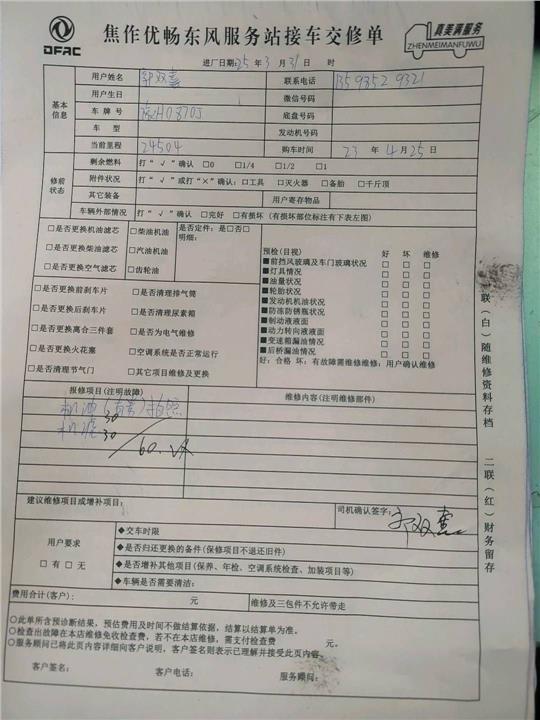 DFAC
焦作优畅东风服务站接车交修单
真美满服务
ZHENMEIMANFUWU
进厂日期:25 年 3 月 31 日 时
基本信息
用户姓名
联系电话
用户生日
微信号码
车 牌 号
底盘号码
车 型
发动机号码
当前里程 24504 购车时间 23 年 4 月 25 日
修前状态
剩余燃料 打“√”确认 □0 □1/4 □1/2 □1
附件状况 打“√”或打“×”确认:□工具 □灭火器 □备胎 □千斤顶
其它装备 用户寄存物品
车辆外部情况 打“√”确认 □完好 □有损坏 (有损坏部位标注有下表左图)
□是否更换机油滤芯 □柴油机油
□是否更换柴油滤芯 □汽油机油
□是否更换空气滤芯 □齿轮油
是否定件:□是□否□
明细:
预检(目视) 好 坏 维修
■前挡风玻璃及车门玻璃状况 □ □ □
■灯具情况 □ □ □
■油量状况 □ □ □
■轮胎状况 □ □ □
■发动机机油状况 □ □ □
■防冻防锈瓶状况 □ □ □
■制动液液面 □ □ □
■动力转向液液面 □ □ □
■变速箱漏油情况 □ □ □
■后桥漏油情况 □ □ □
好:合格 坏:有故障需维修维修:用户确认维修
□是否更换前刹车片 □是否清理排气筒
□是否更换后刹车片 □是否清理尿素箱
□是否更换离合三件套 □是否为电气维修
□是否更换火花塞 □空调系统是否正常运行
□是否清理节气门 □其它项目维修及更换
报修项目(注明故障) 维修内容(注明维修部件)
机油 30
机滤 30
60.
建议维修项目或增补项目:
司机确认签字:
用户要求
□ 有 □ 无
◆交车时限
◆是否归还更换的备件(保修项目不退还旧件)
◆是否增补其他项目(保养、年检、空调系统检查、加装项目等)
◆车辆是否需要清洁:
费用合计(客户): 元 维修及三包件不允许带走
○此单所含预诊断结果,预估费用及时间不做结算依据,结算以结算单为准。
○检查出故障在本店维修免收检查费,若不在本店维修,需支付检查费 元。
○服务顾问已将此页内容详细向客户说明,客户签名则表示已理解并接受此页内容。
客户签名: 客户电话: 服务顾问:
一联(白)随维修资料存档 二联(红)财务留存